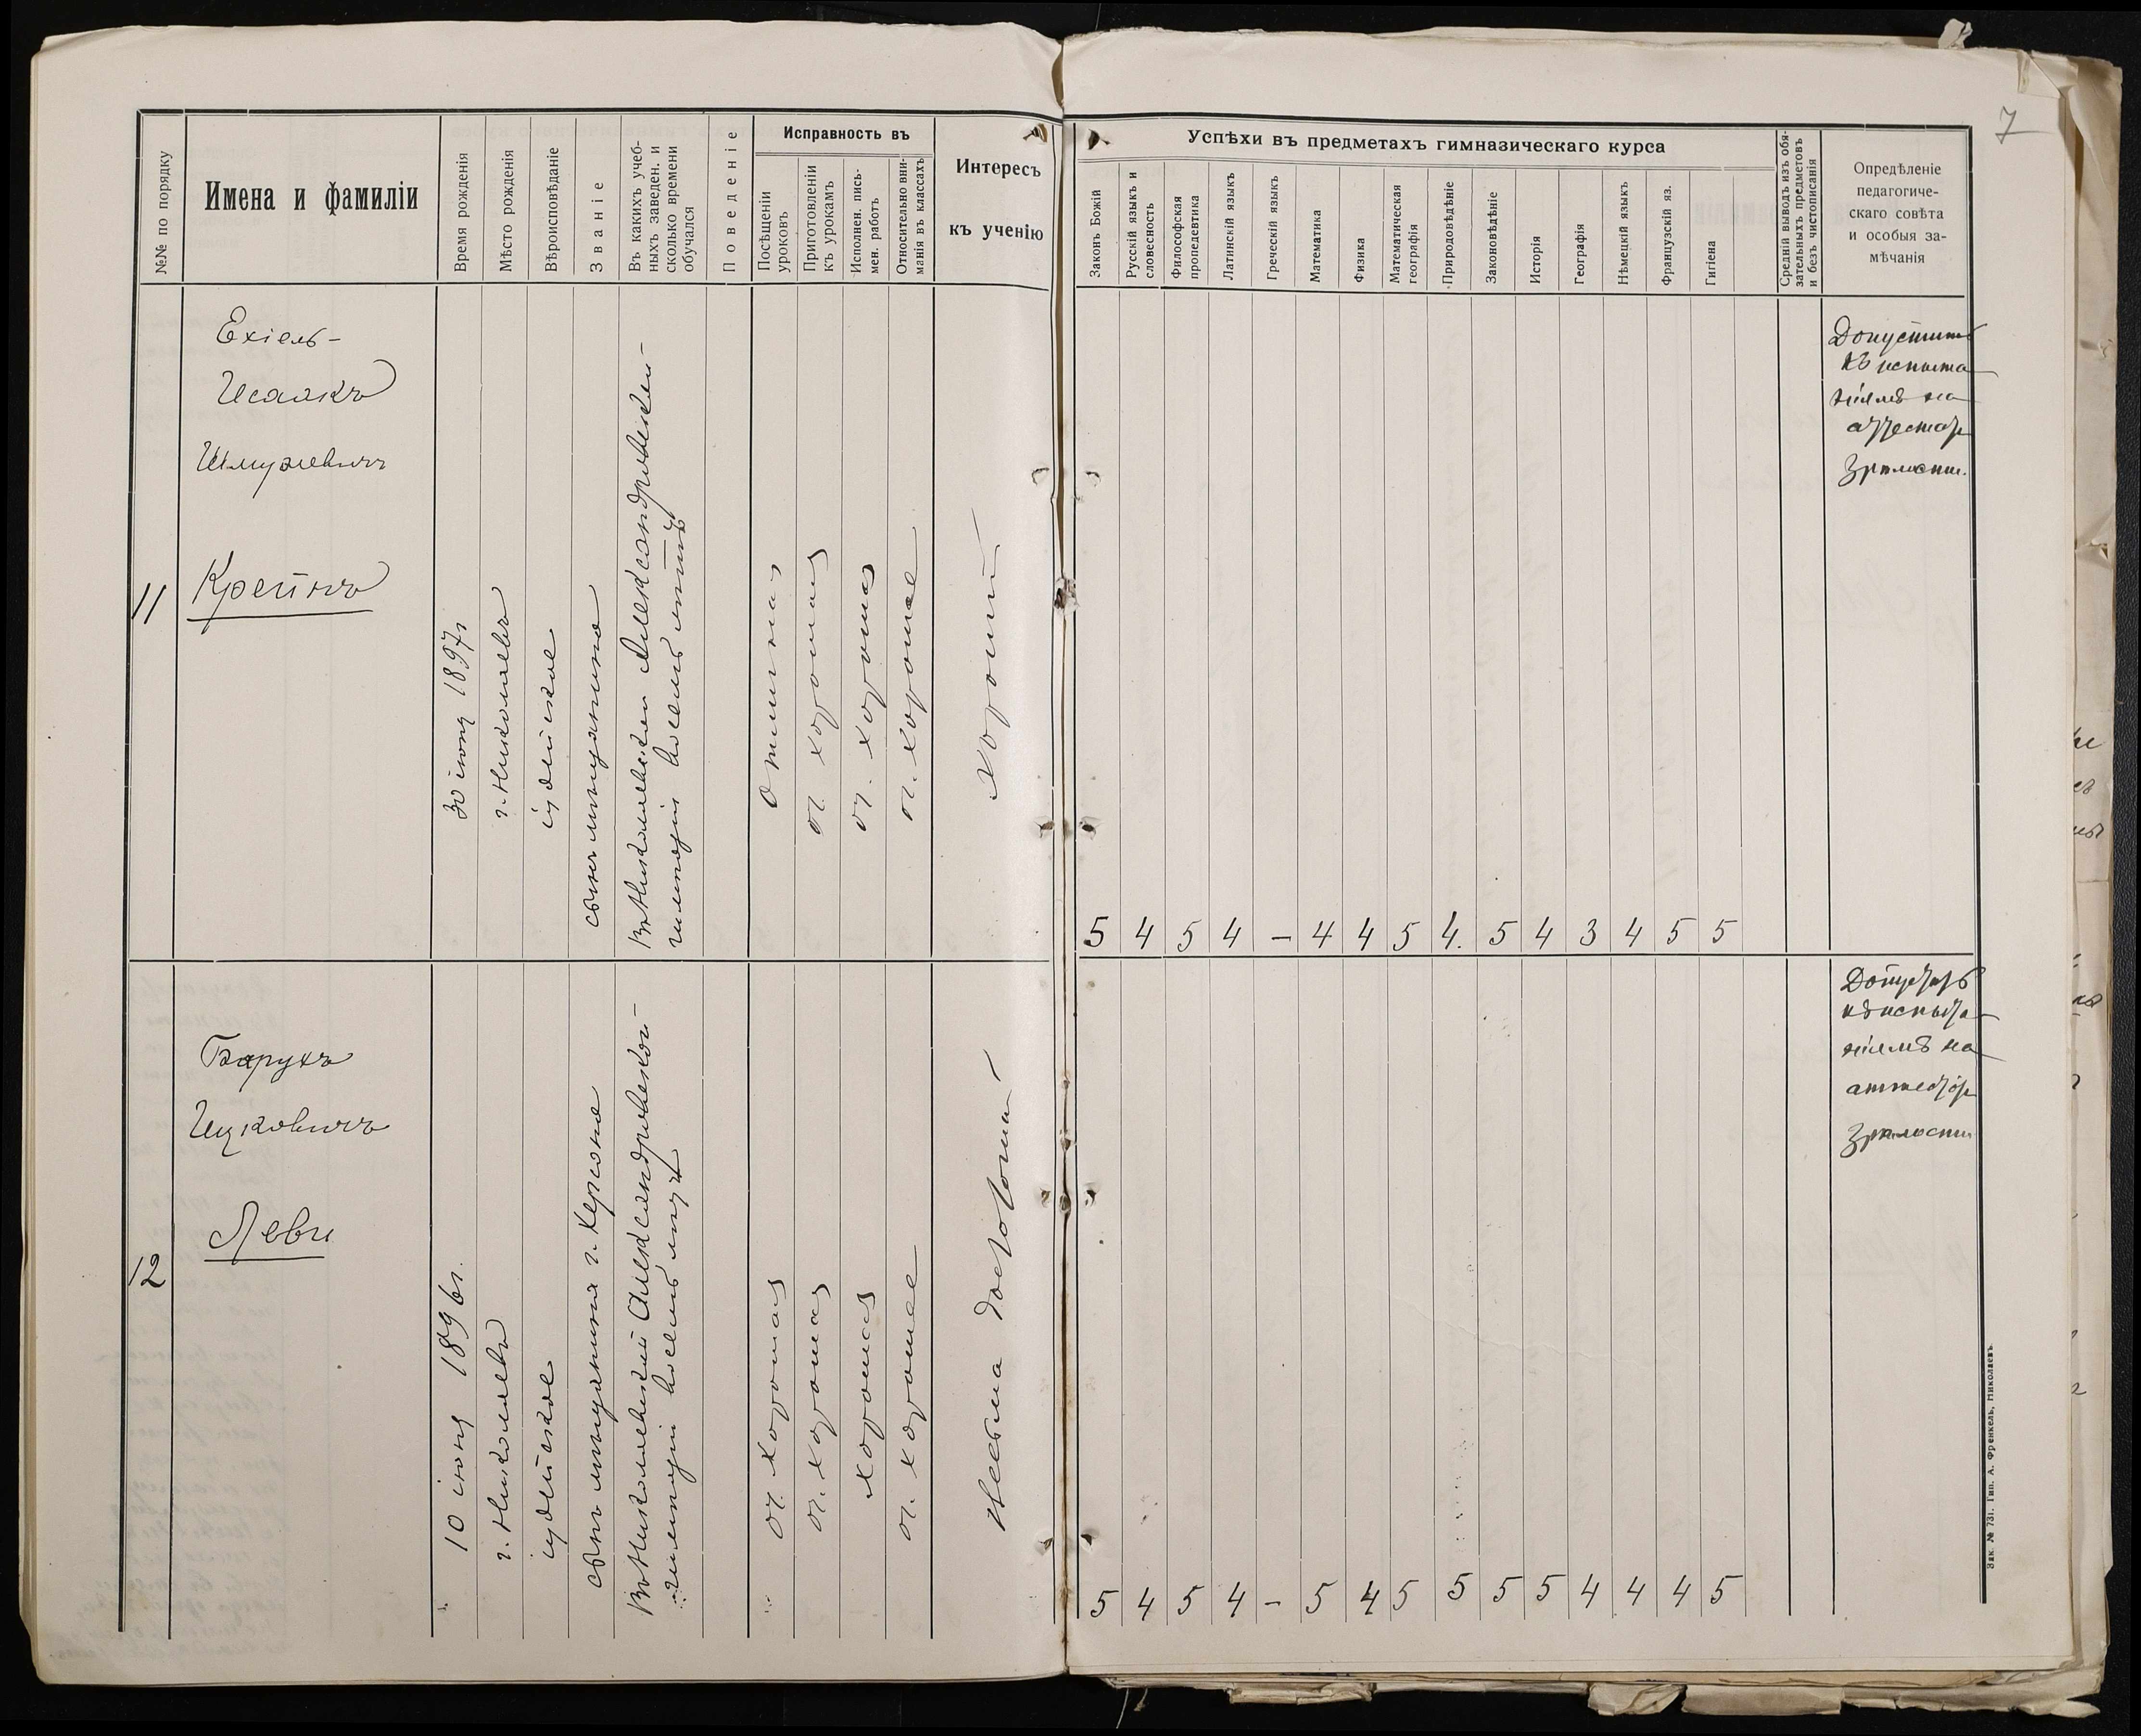 7
№№ по порядку
Имена и фамиліи
Время рожденія
Мѣсто рожденія
Вѣроисповѣданіе
Званіе
Въ какихъ учеб-
ныхъ заведен. и
сколько времени
обучался
Поведеніе
Исправность въ
Посѣщеніи
уроковъ
Приготовленіи
къ урокамъ
Исполнен. пись-
мен. работъ
Относительно вни-
манія въ классахъ
Интересъ
къ ученію
Успѣхи въ предметахъ гимназическаго курса
Законъ Божій
Русскій языкъ и
словесность
Философская
пропедевтика
Латинскій языкъ
Греческій языкъ
Математика
Физика
Математическая
географія
Природовѣдѣніе
Законовѣдѣніе
Исторія
Географія
Нѣмецкій языкъ
Французскій яз.
Гигіена
Средній выводъ изъ обя-
зательныхъ предметовъ
и безъ чистописанія
Опредѣленіе
педагогиче-
скаго совѣта
и особыя за-
мѣчанія
11
Ехіель-
Исаакъ
Шмулевичъ
Крейнъ
30 іюня 1897г
г. Николаевъ
іудейское
сынъ мѣщанина
Въ Николаевской Александровской
гимназіи восемь лѣтъ
отличная
оч. хорошая
оч. хорошая
оч. хорошее
хорошій
5 4 5 4 – 4 4 5 4. 5 4 3 4 5 5
Допустить
къ испыта
ніямъ на
аттестат
зрѣлости.
12
Барухъ
Ицковичъ
Леви
10 іюня 1896г.
г. Николаевъ
іудейское
сынъ мѣщанина г. Херсона
Въ Николаевской Александровской
гимназіи восемь лѣтъ
оч. хорошая
оч. хорошая
хорошая
оч. хорошее
5 4 5 4 – 5 4 5 5 5 5 4 4 4 5
Допустить
къ испыта
ніямъ на
аттестат
зрѣлости
Зак. № 731. Тип. А. Френкель, Николаевъ.